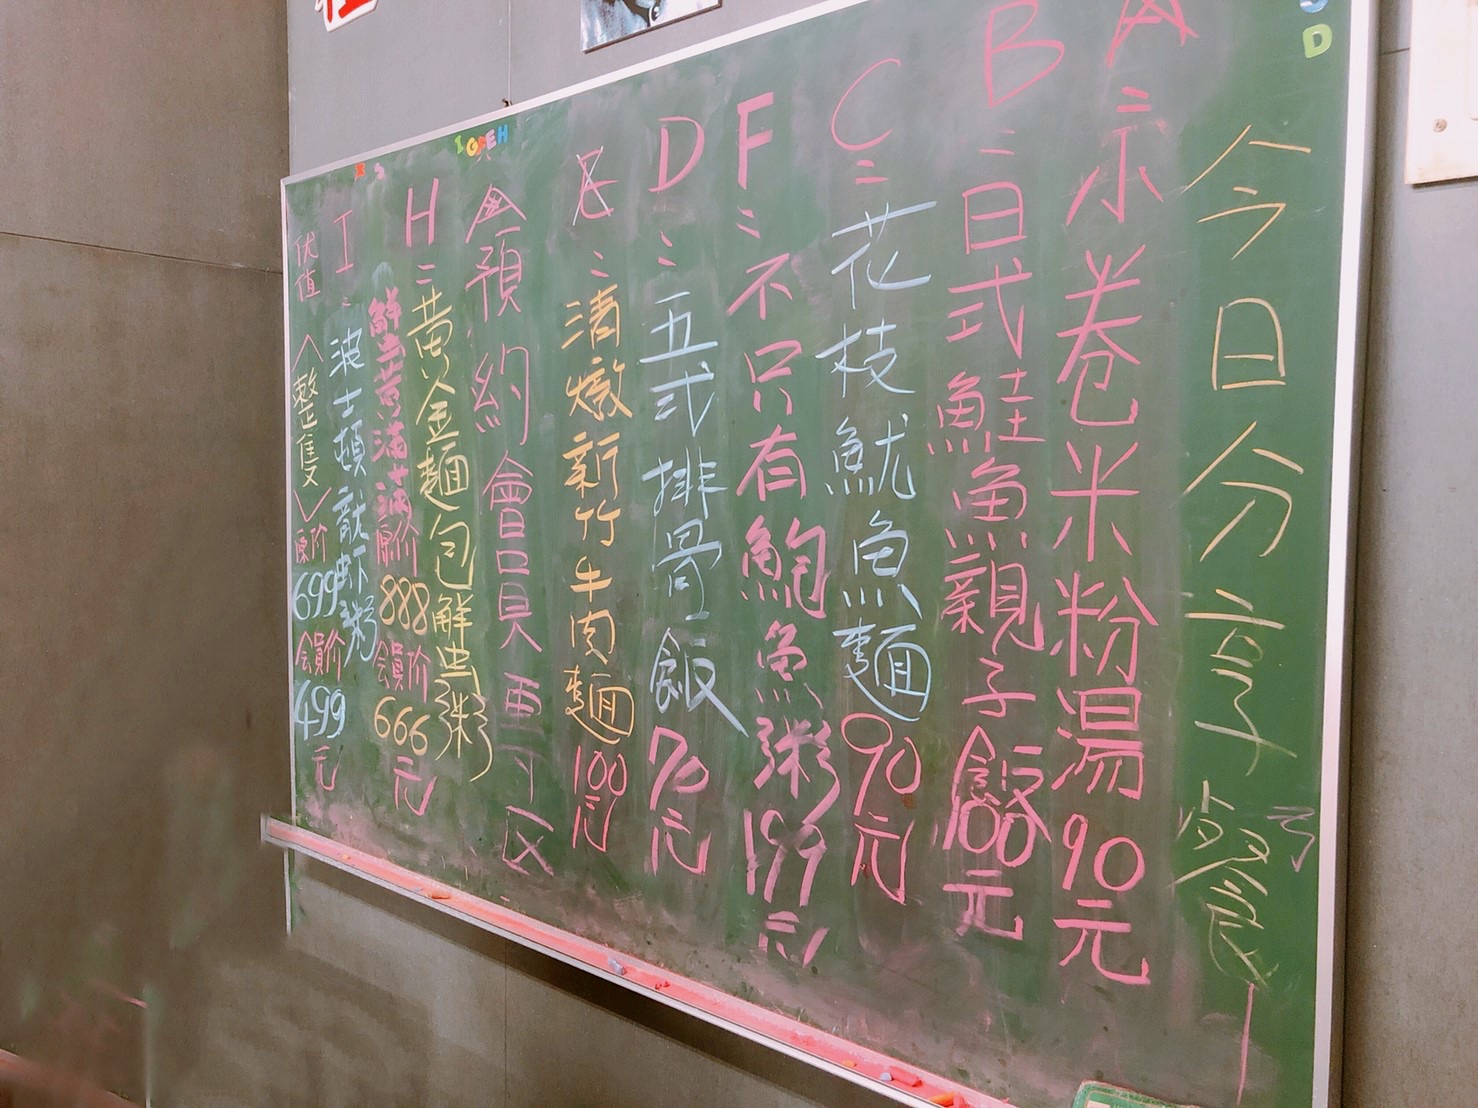 今日分享餐
A：示卷米粉湯90元
B：日式鮭魚親子飯100元
C：花枝魷魚麵90元
F：不只有鮑魚粥199元
D：五式排骨飯70元
E：清燉新竹牛肉麵100元
預約會員
H：黃金麵包蟹粥
滿滿原价888會員价666元
I：波士頓龍虾粥
(整隻)原价699会員价499元
D